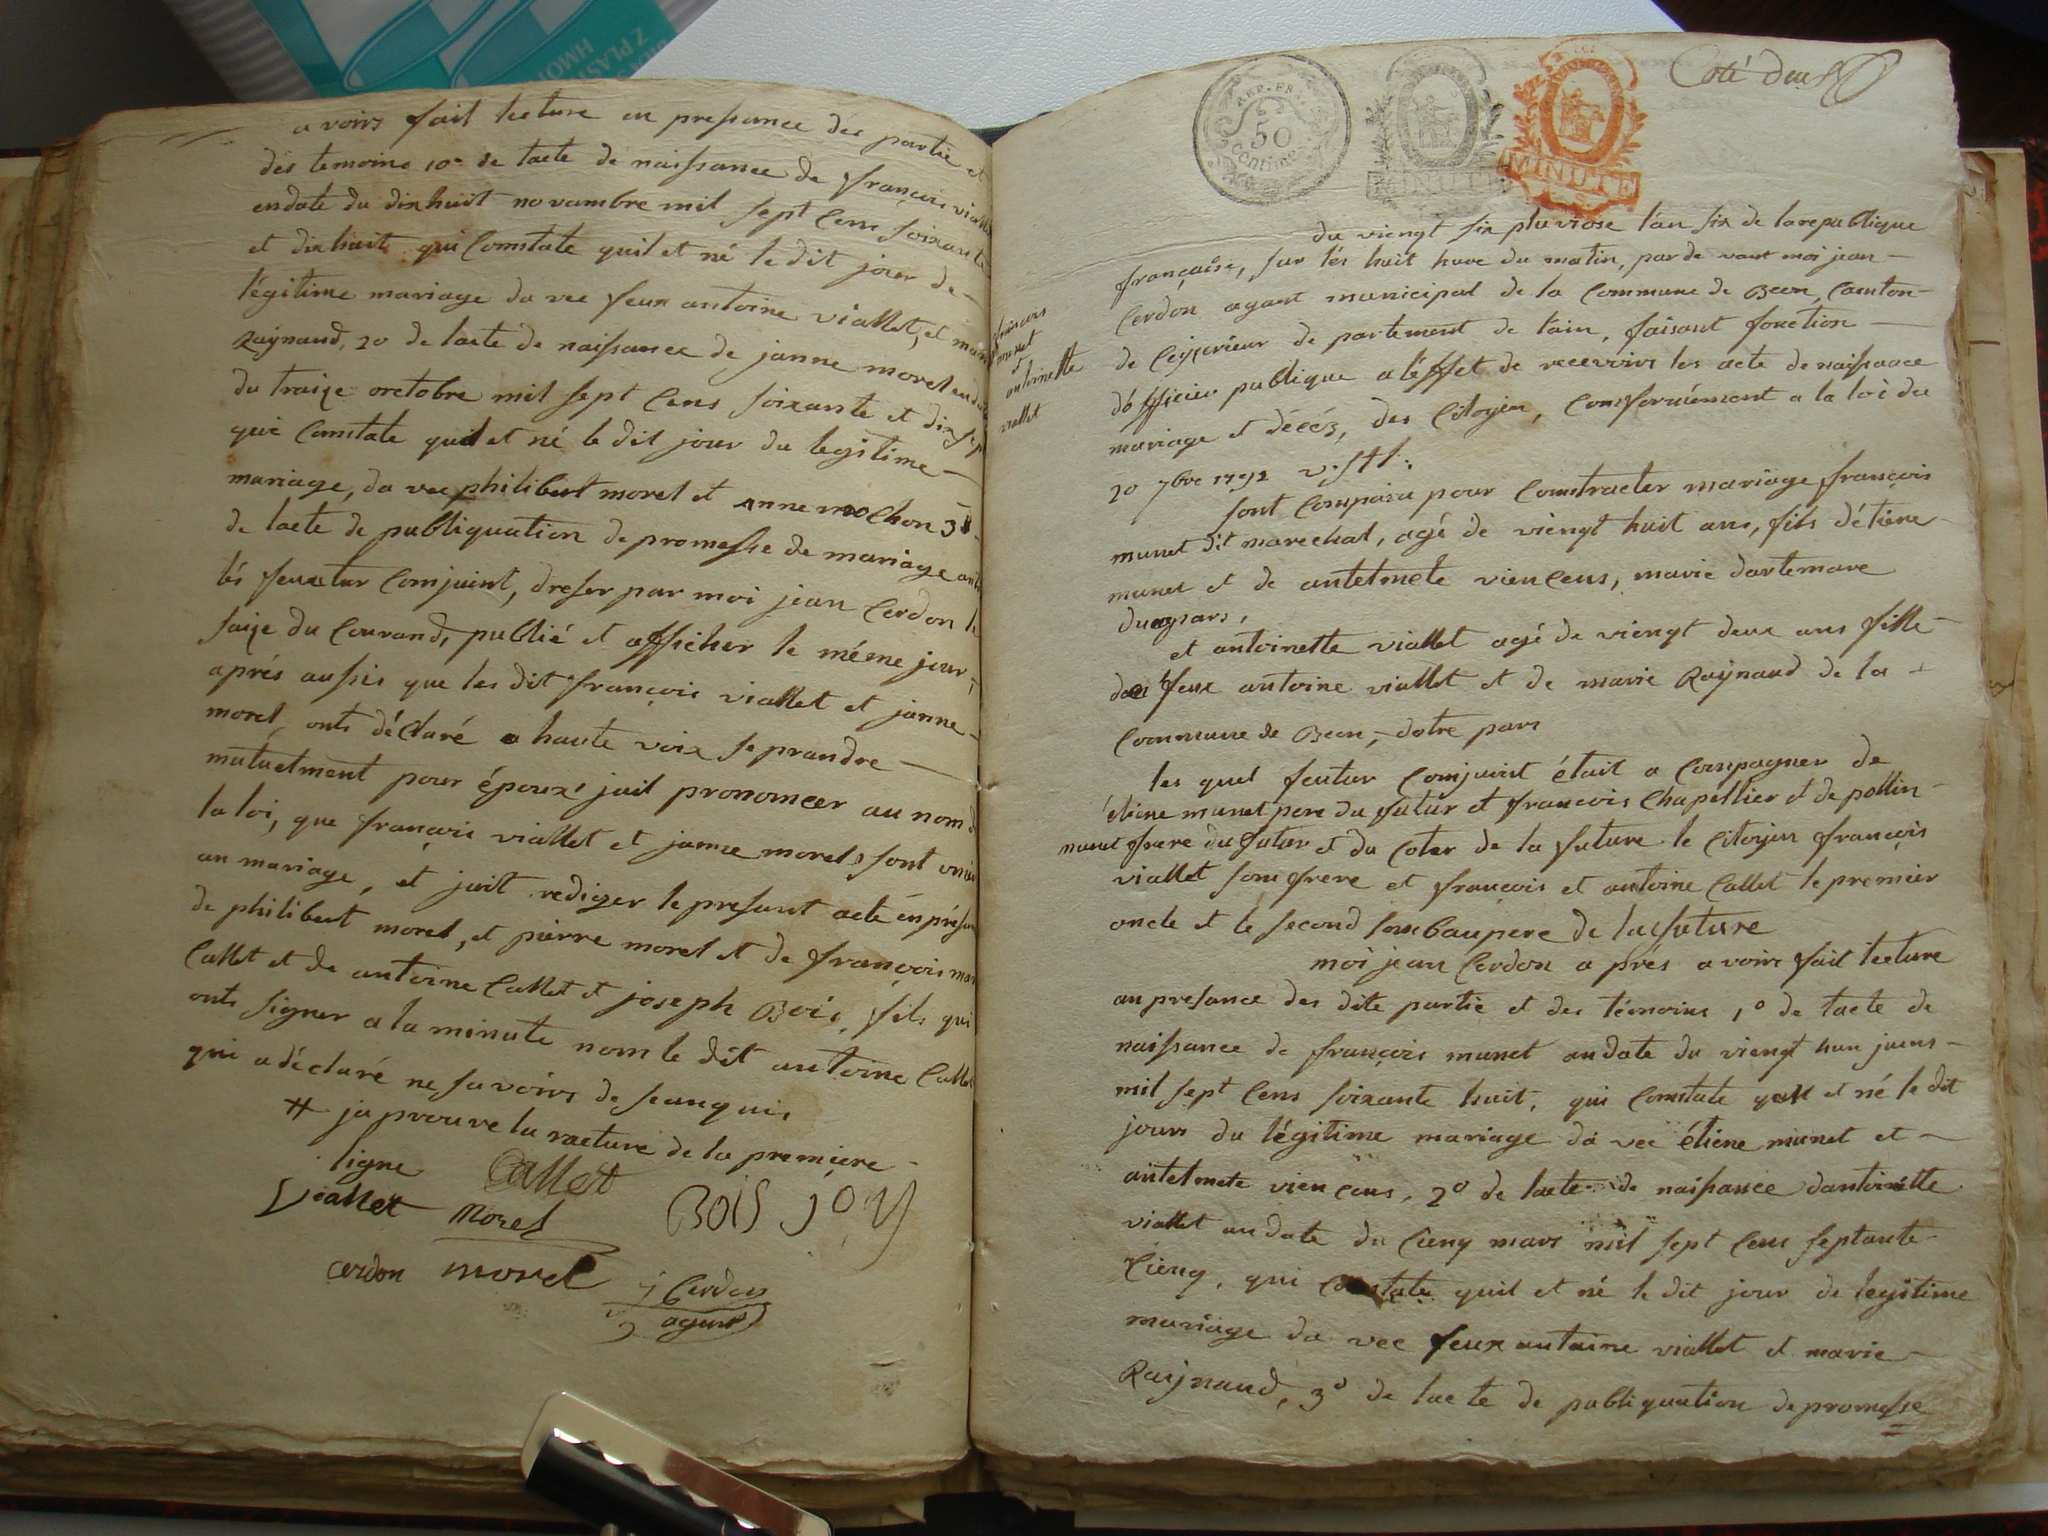 avoirs fait lecture en presance des partie et
des temoins 10 de lacte de naissance de françois viallet
en date du dix huit novambre mil sept cens soixante
et dix huit qui Comstate quil et né le dit jour de
légitime mariage da vec feux antoine viallet, et marie
Raynaud, 20 de lacte de naissance de janne morel en date
du traize orctobre mil sept Cens soixante et dix sept
qui Comstate quil et né le dit jour du legitime
mariage, da vec philibert morel et anne mochon 3º
de lacte de publiquation de promesse de mariage antre
lés feuxtur Comjuint, dreser par moi jean Cerdon le
saize du Courand, publié et afficher le méme jour,
aprés aussis que les dit françois viallet et janne
morel, onts déclaré a haute voix se prandre
mutuelment pour époux' jait pronomcer au nom de
la loi, que françois viallet et janne morel, sont unie
an mariage, et jait rediger le presant acte én présance
de philibert morel, et pierre morel et de françois
Callet et de antoine Callet et joseph Bois, fils qui
onts signer a la minute nom le dit antoine Callet
qui a déclaré ne savoirs de se anquis,
# japrouve la racture de la premiere
ligne
Callet
Viallet Morel BOIS JOY
cerdon morel
j Cerdon
agent
Coté deux
REP. FR.
50
centimes
MINUTE
MINUTE
du viengt six pluviose l'an six de la republique
française, sur lés huit hure du matin, par de vant moi jean
Cerdon agant municipal de la Commune de Beon, Camton
de Ceyzerieux de partement de lain, faisant fonction
dófficier publique a léffet de recevoirs les acte de naissance
mariage et décéz, des Citoyen, Comsformément a la loi du
20 7bre 1792 v. stl.
françois
munet
et
antoinette
viallet
sont Comparu pour Comstracter mariage françois
munet dit marechal, agé de viengt huit ans, fils détiene
munet et de antelmete viencens, marie dartemare
dun pars,
et antoinette viallet agé de viengt deux ans fille
de feux antoine viallet et de marie Raynaud de la
Commune de Beon, dotre pars
les quel feutur Comjuint était a Compagner de
étiene munet pere du futur et françois Chapellier et de pollin
munet frere du futur et du coter de la future le Citoyen françois
viallet som frere et françois et antoine Callet le premier
oncle et le second som baupere de la future
moi jean Cerdon a pres avoirs fait lecture
an presance des dite partie et des témoins 1º de lacte de
naissance de françois munet an date du viengt hun juens
mil sept Cens soixante huit, qui Comstate quil et né le dit
jours du légitime mariage da vec étiene munet et
antelmete viencens, 2º de lacte de naissance dantoinette
viallet an date du Cienq mars mil sept Cens septante
Cienq, qui Comstate quil et né le dit jour de legitime
mariage da vec feux antoine viallet et marie
Raijnaud, 3º de lacte de publiquation de promesse